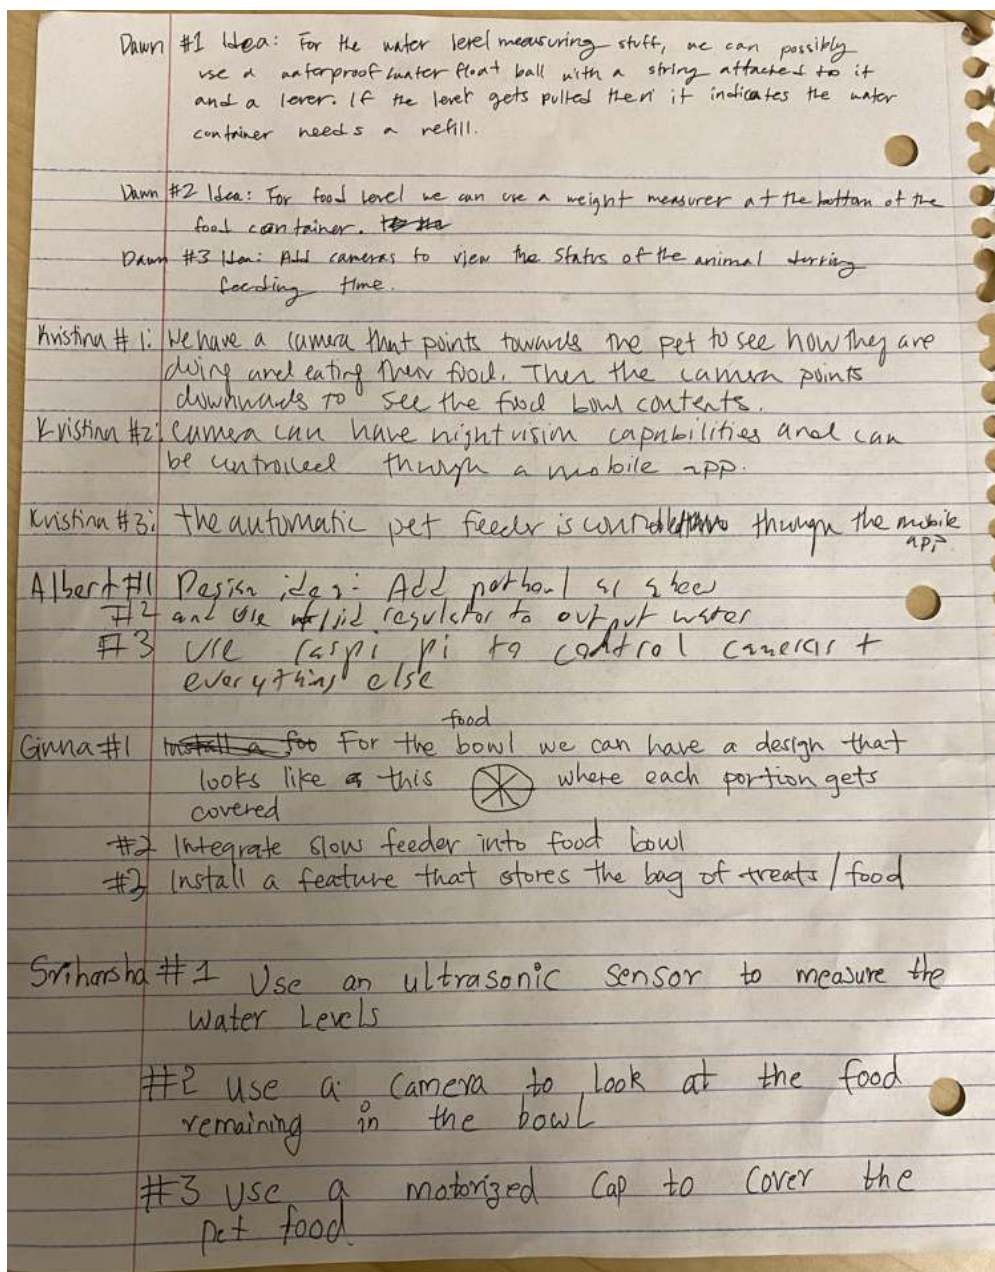 Dawn #1 Idea: For the water level measuring stuff, we can possibly
use a waterproof water float ball with a string attached to it
and a lever. If the lever gets pulled then it indicates the water
container needs a refill.
Dawn #2 Idea: For food level we can use a weight measurer at the bottom of the
food container.
Dawn #3 Idea: Add cameras to view the status of the animal during
feeding time.
Kristina #1: We have a camera that points towards the pet to see how they are
doing and eating their food. Then the camera points
downwards to see the food bowl contents.
Kristina #2: Camera can have night vision capabilities and can
be controlled through a mobile app.
Kristina #3: the automatic pet feeder is through the mobile
app.
Albert #1 Design idea: Add
#2 and use regulator to output water
#3 use raspi pi to control cameras +
everything else
food
Ginna #1 For the bowl we can have a design that
looks like this where each portion gets
covered
#2 Integrate slow feeder into food bowl
#3 Install a feature that stores the bag of treats/food
Sriharsha #1 Use an ultrasonic sensor to measure the
Water Levels
#2 Use a camera to look at the food
remaining in the bowl
#3 Use a motorized cap to cover the
pet food